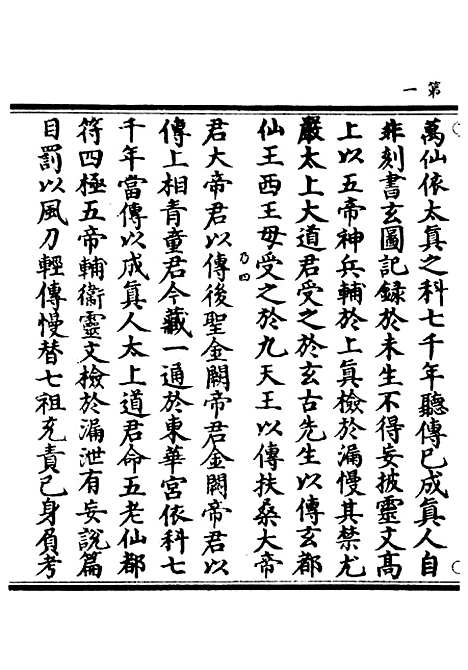 第一
萬仙依太真之科七千年聽傳已成真人自
非刻書玄圖記録於未生不得妄披靈文髙
上以五帝神兵輔於上真檢於漏慢其禁尤
嚴太上大道君受之於玄古先生以傳玄都
仙王西王母受之於九天王以傳扶桑大帝
乃四
君大帝君以傳後聖金闕帝君金闕帝君以
傳上相青童君今藏一通於東華宮依科七
千年當傳以成真人太上道君命五老仙都
符四極五帝輔衞靈文檢於漏泄有妄説篇
目罰以風刀輕傳慢替七祖充責已身負考